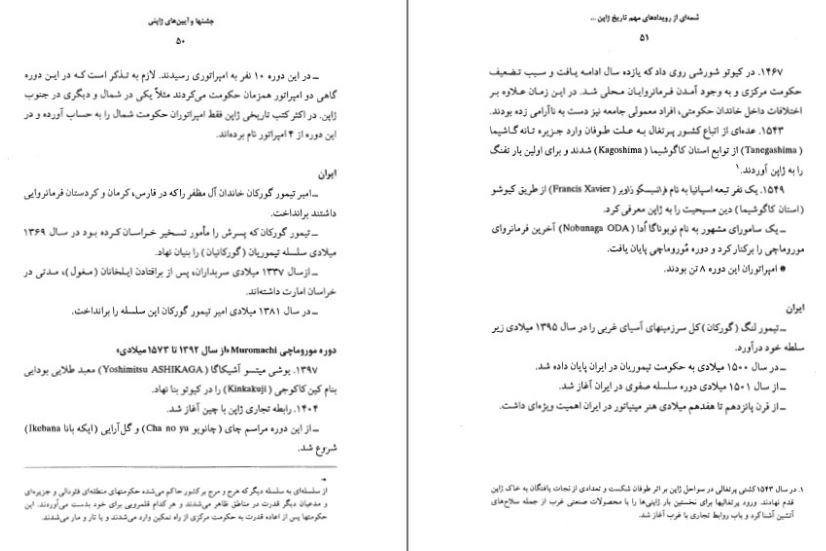 جشنها و آیین‌های ژاپنی
۵۰
ـ در این دوره ۱۰ نفر به امپراتوری رسیدند. لازم به تذکر است که در این دوره
گاهی دو امپراتور همزمان حکومت می‌کردند مثلاً یکی در شمال و دیگری در جنوب
ژاپن. در اکثر کتب تاریخی ژاپن فقط امپراتوران حکومت شمال را به حساب آورده و در
این دوره از ۴ امپراتور نام برده‌اند.
ایران
ـ امیر تیمور گورکان خاندان آل مظفر را که در فارس، کرمان و کردستان فرمانروایی
داشتند برانداخت.
ـ تیمور گورکان که پسرش را مأمور تسخیر خراسان کرده بود در سال ۱۳۶۹
میلادی سلسله تیموریان (گورکانیان) را بنیان نهاد.
ـ از سال ۱۳۳۷ میلادی سربداران، پس از برافتادن ایلخانان (مغول)، مدتی در
خراسان امارت داشته‌اند.
ـ در سال ۱۳۸۱ میلادی امیر تیمور گورکان این سلسله را برانداخت.
دوره موروماچی Muromachi «از سال ۱۳۹۲ تا ۱۵۷۳ میلادی»
۱۳۹۷. یوشی میتسو آشیکاگا (Yoshimitsu ASHIKAGA) معبد طلایی بودایی
بنام کین کاکوجی (Kinkakuji) را در کیوتو بنا نهاد.
۱۴۰۴. رابطه تجاری ژاپن با چین آغاز شد.
ـ از این دوره مراسم چای (چانویو Cha no yu) و گل‌آرایی (ایکه بانا Ikebana)
شروع شد.
از سلسله‌ای به سلسله دیگر که هرج و مرج بر کشور حاکم می‌شده حکومتهای منطقه‌ای فئودالی و جزیره‌ای
و مدعیان دیگر قدرت در مناطق ظاهر می‌شدند و هر کدام قلمرویی برای خود بدست می‌آوردند. این
حکومتها پس از اعاده قدرت به حکومت مرکزی از راه تمکین وارد می‌شدند و یا تار و مار می‌شدند.
شمه‌ای از رویدادهای مهم تاریخ ژاپن ...
۵۱
۱۴۶۷. در کیوتو شورشی روی داد که یازده سال ادامه یافت و سبب تضعیف
حکومت مرکزی و به وجود آمدن فرمانروایان محلی شد. در این زمان علاوه بر
اختلافات داخل خاندان حکومتی، افراد معمولی جامعه نیز دست به ناآرامی زده بودند.
۱۵۴۳. عده‌ای از اتباع کشور پرتغال به علت طوفان وارد جزیره تانه گاشیما
(Tanegashima) از توابع استان کاگوشیما (Kagoshima) شدند و برای اولین بار تفنگ
را به ژاپن آوردند.۱
۱۵۴۹. یک نفر تبعه اسپانیا به نام فرانسیسکو زاویر (Francis Xavier) از طریق کیوشو
(استان کاگوشیما) دین مسیحیت را به ژاپن معرفی کرد.
ـ یک سامورای مشهور به نام نوبوناگا اُدا (Nobunaga ODA) آخرین فرمانروای
موروماچی را برکنار کرد و دوره مُوروماچی پایان یافت.
* امپراتوران این دوره ۸ تن بودند.
ایران
ـ تیمور لنگ (گورکان) کل سرزمینهای آسیای غربی را در سال ۱۳۹۵ میلادی زیر
سلطه خود درآورد.
ـ در سال ۱۵۰۰ میلادی به حکومت تیموریان در ایران پایان داده شد.
ـ از سال ۱۵۰۱ میلادی دوره سلسله صفوی در ایران آغاز شد.
ـ از قرن پانزدهم تا هفدهم میلادی هنر مینیاتور در ایران اهمیت ویژه‌ای داشت.
۱. در سال ۱۵۴۳ کشتی پرتغالی در سواحل ژاپن بر اثر طوفان شکست و تعدادی از نجات یافتگان به خاک ژاپن
قدم نهادند. ورود پرتغالیها برای نخستین بار ژاپنی‌ها را با محصولات صنعتی غرب از جمله سلاح‌های
آتشین آشنا کرد و باب روابط تجاری با غرب آغاز شد.